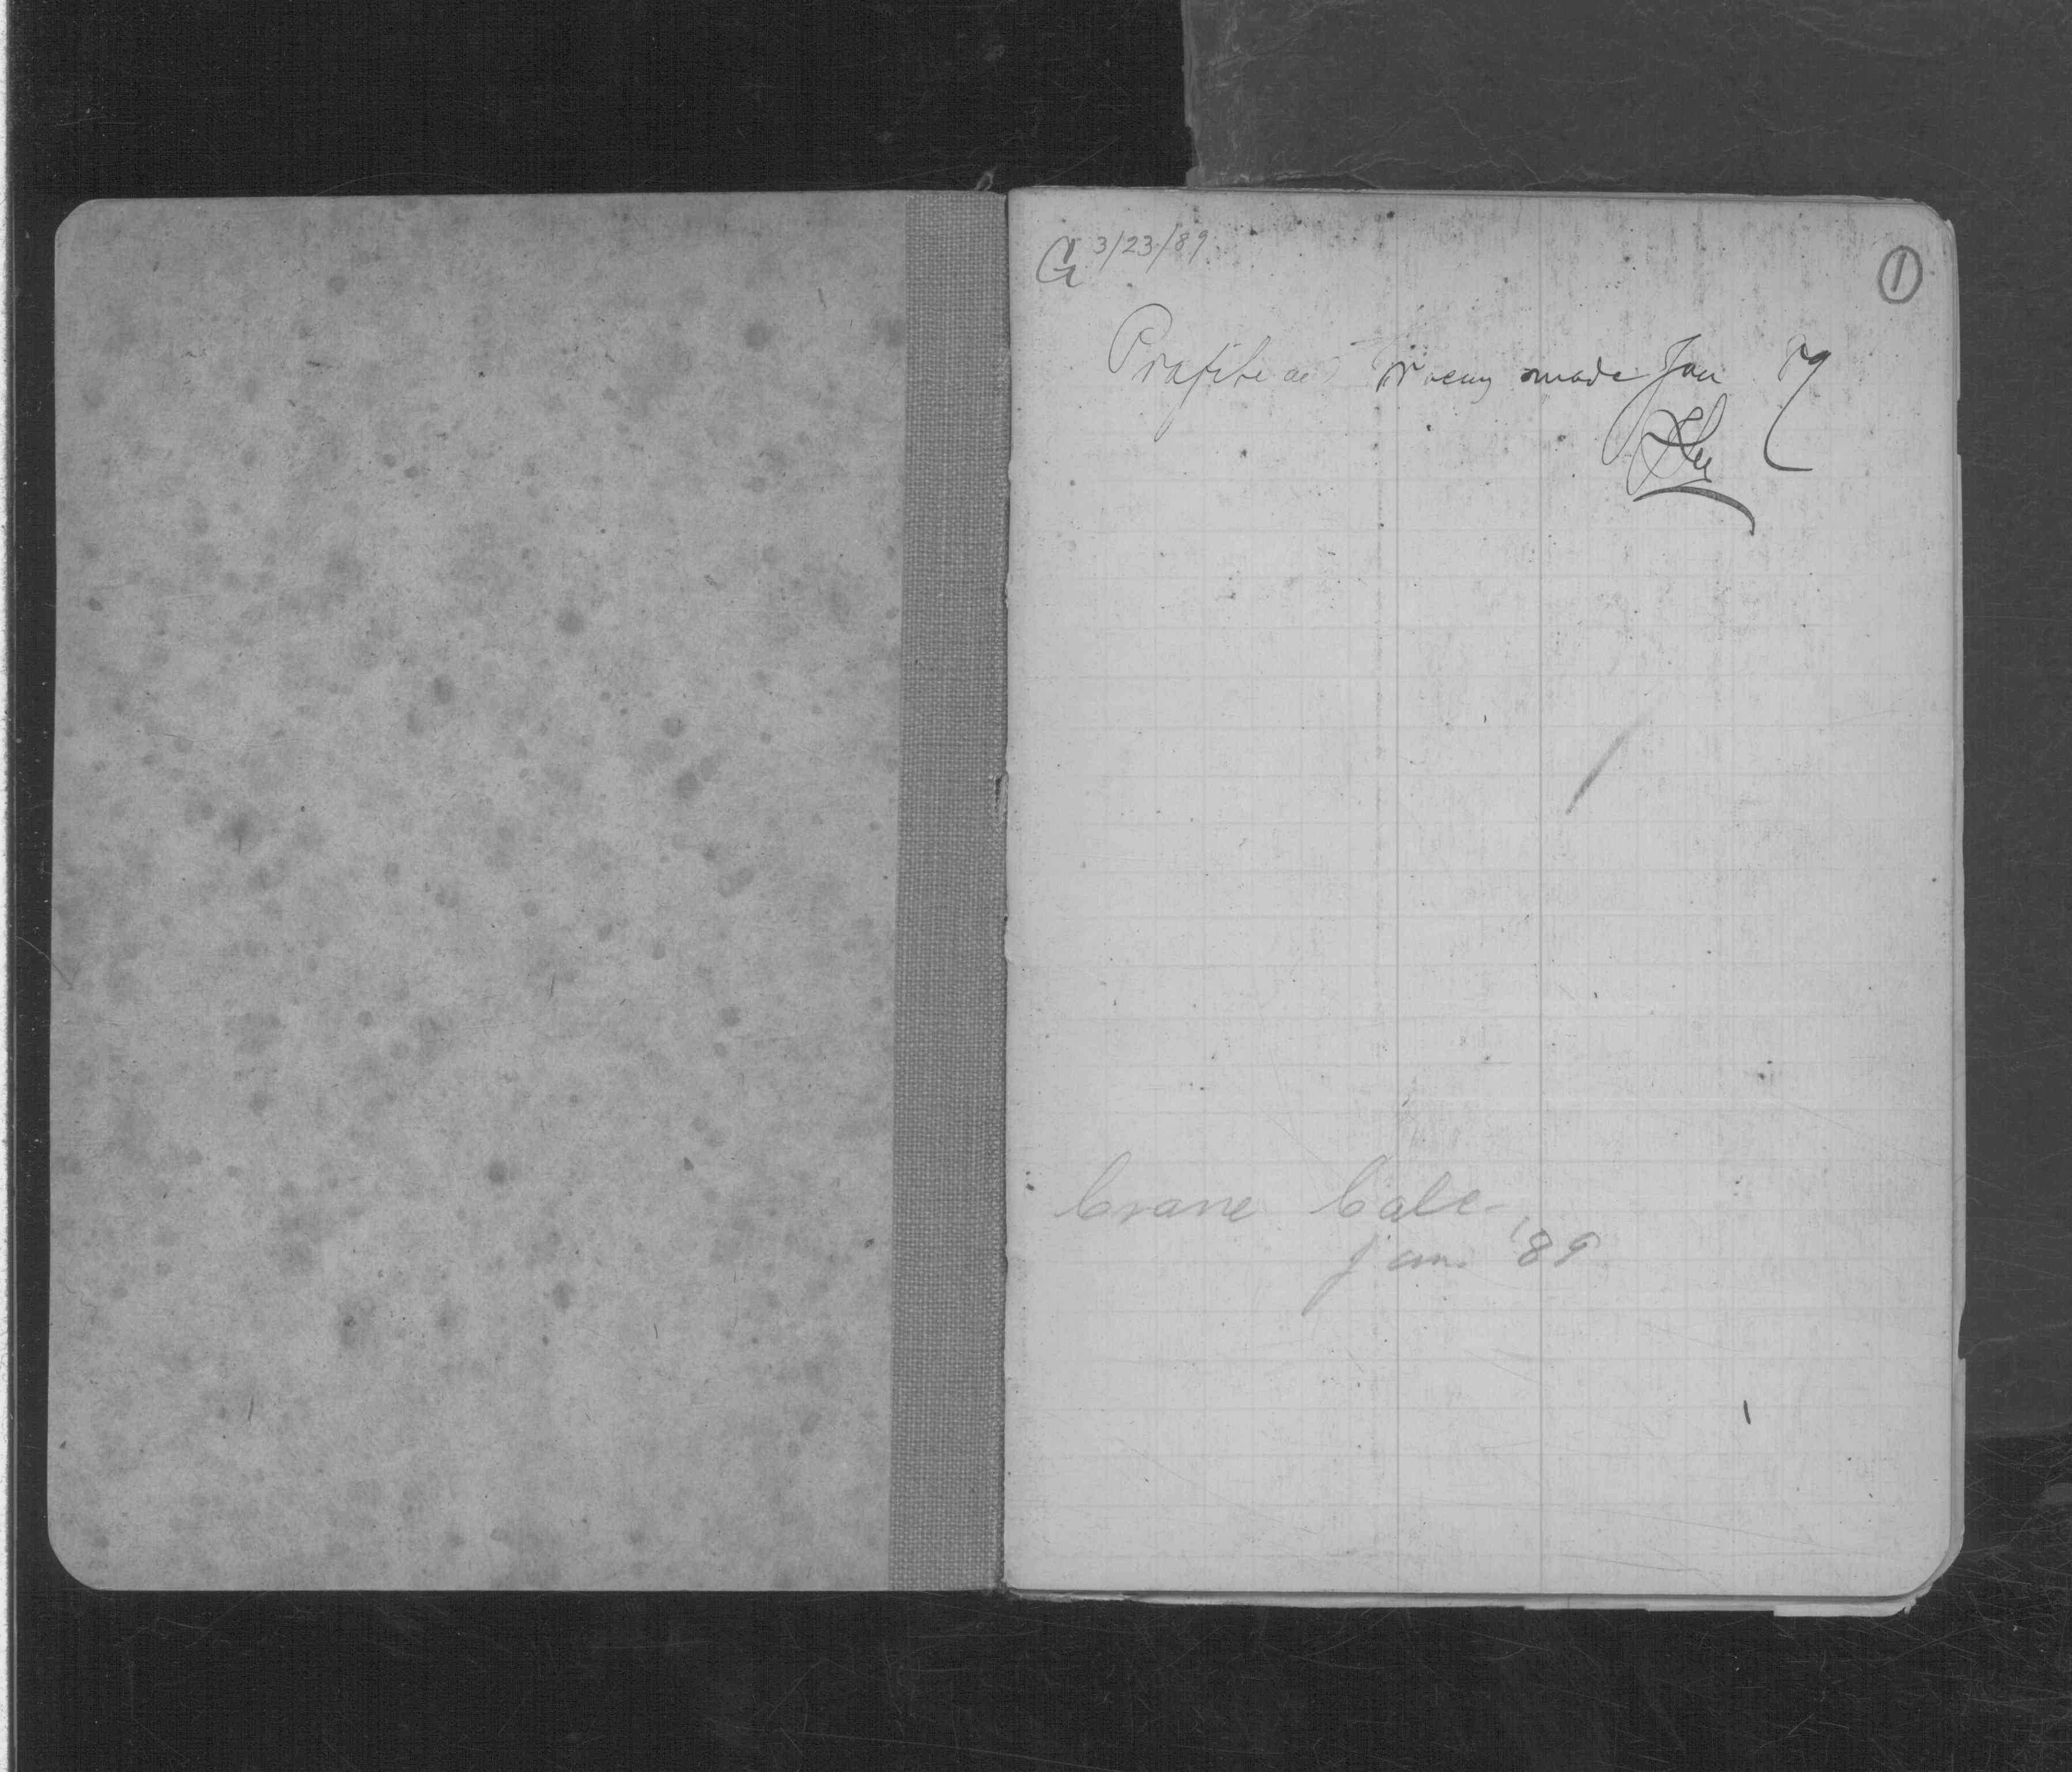 G 3/23/89
1
Profile and made Jan 89
Crane Cale
Jan. '89